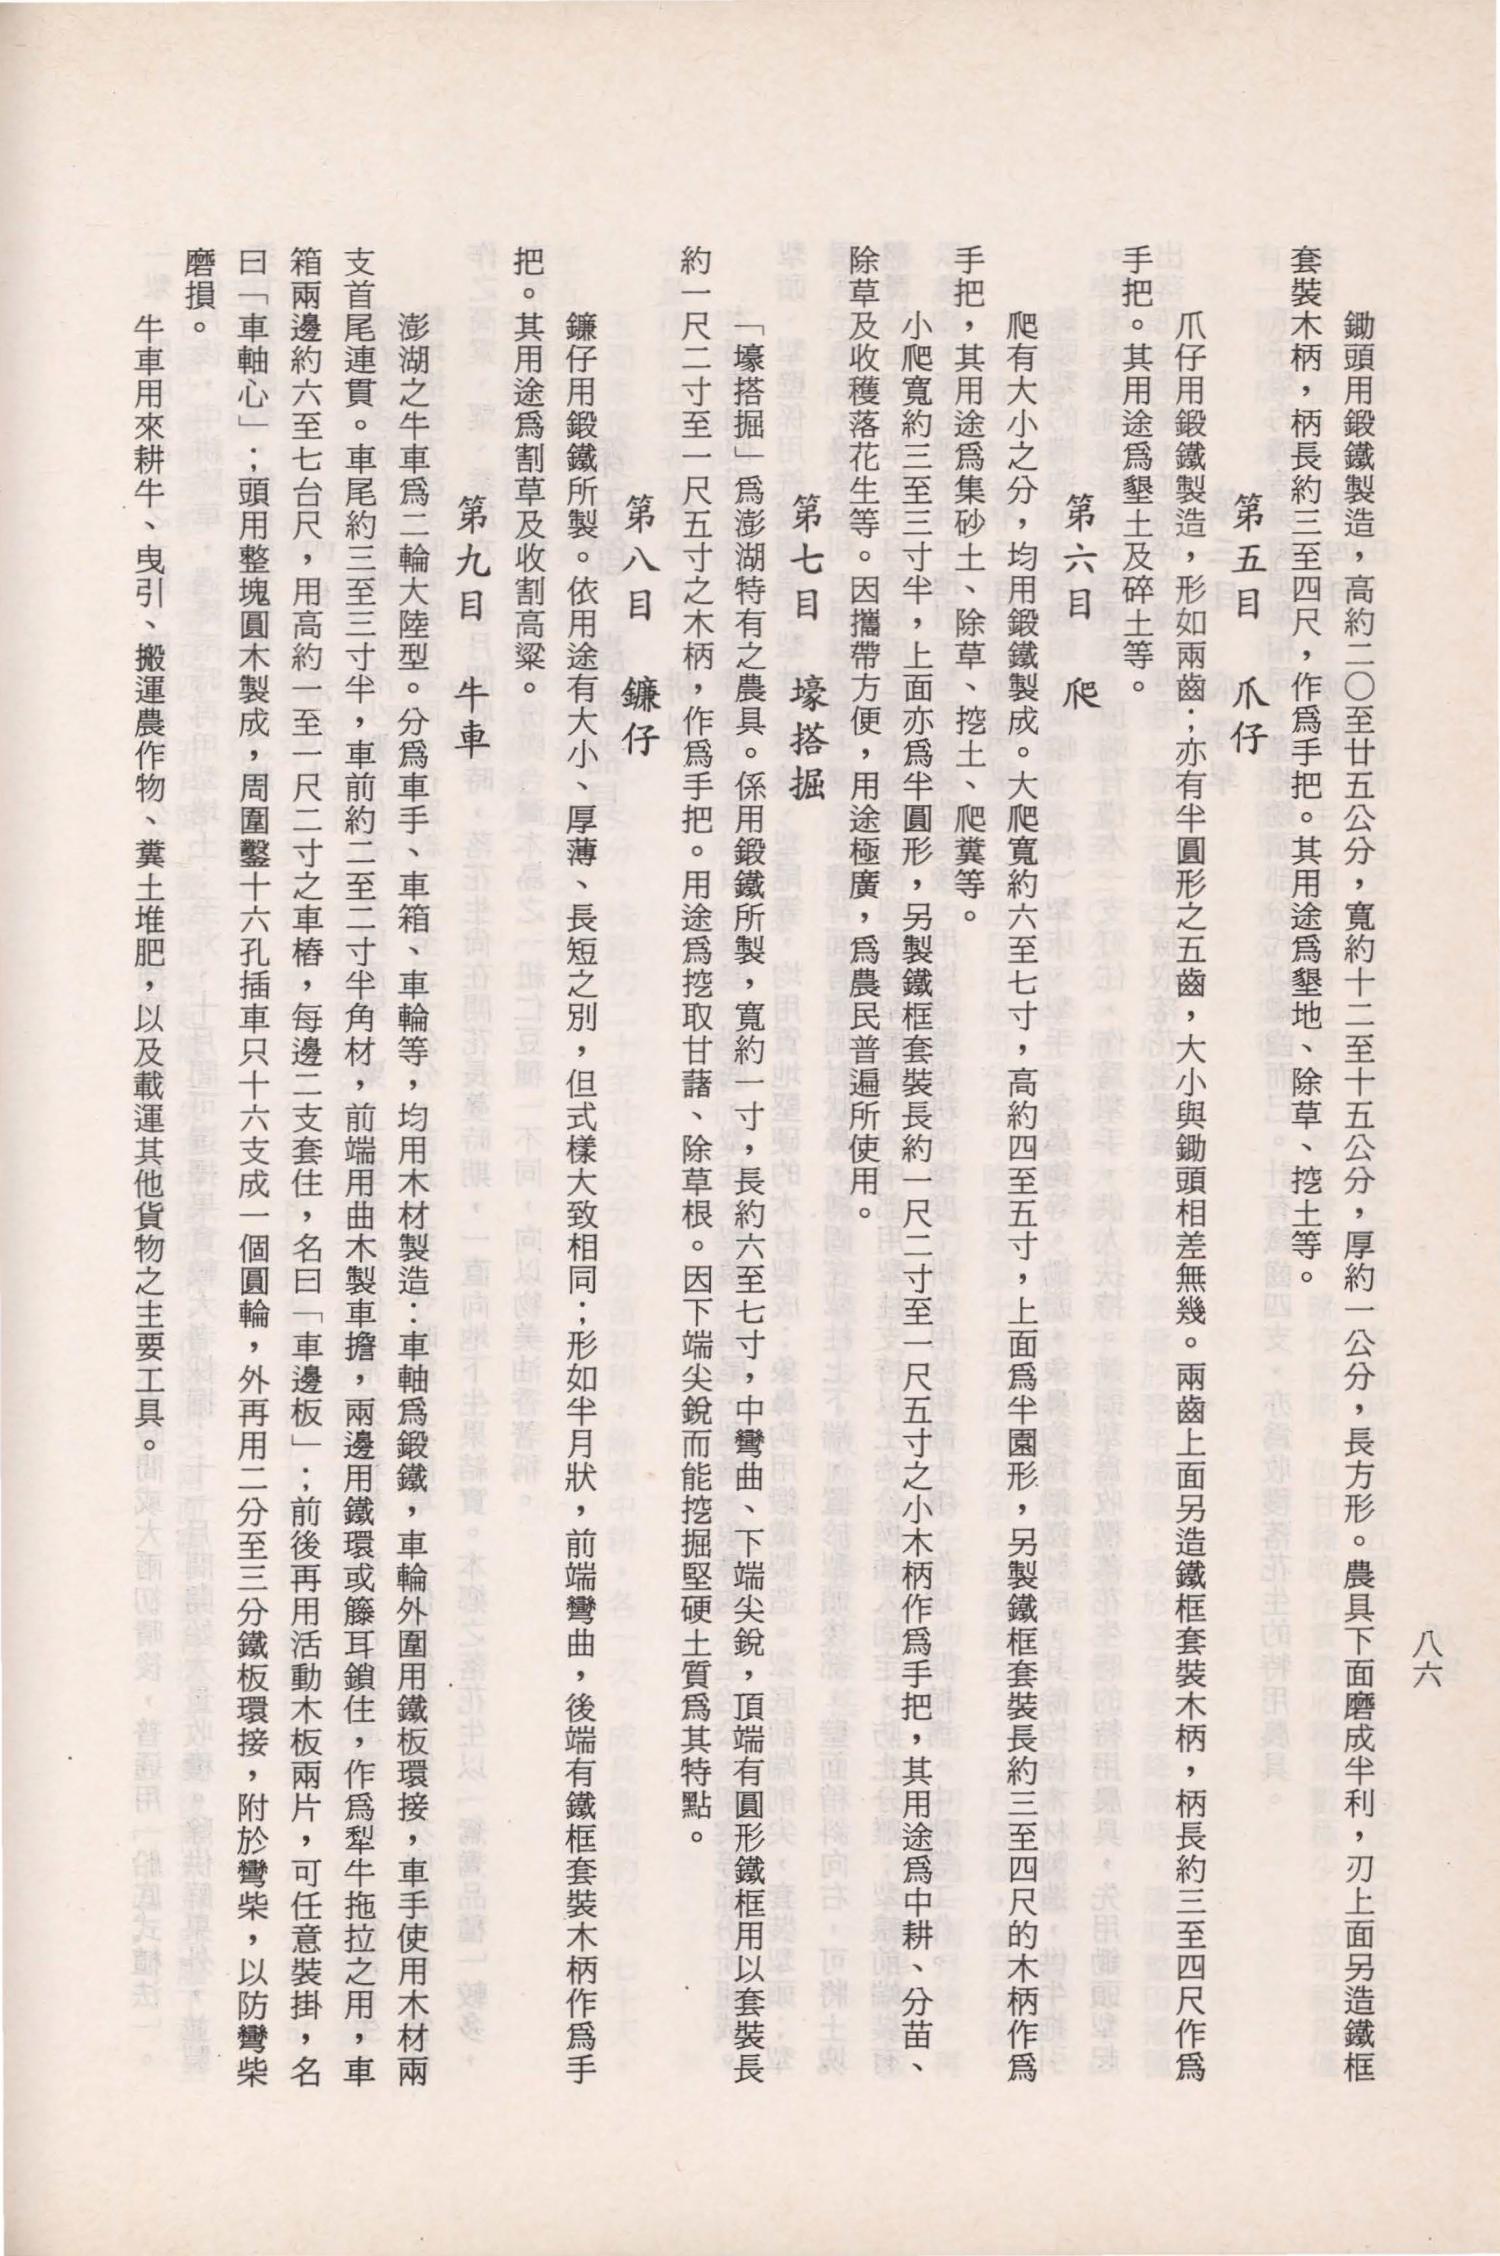 八六
鋤頭用鍛鐵製造，高約二〇至廿五公分，寬約十二至十五公分，厚約一公分，長方形。農具下面磨成半利，刃上面另造鐵框
套裝木柄，柄長約三至四尺，作爲手把。其用途爲墾地、除草、挖土等。
第五目　爪仔
爪仔用鍛鐵製造，形如兩齒；亦有半圓形之五齒，大小與鋤頭相差無幾。兩齒上面另造鐵框套裝木柄，柄長約三至四尺作爲
手把。其用途爲墾土及碎土等。
第六目　爬
爬有大小之分，均用鍛鐵製成。大爬寬約六至七寸，高約四至五寸，上面爲半園形，另製鐵框套裝長約三至四尺的木柄作爲
手把，其用途爲集砂土、除草、挖土、爬糞等。
小爬寬約三至三寸半，上面亦爲半圓形，另製鐵框套裝長約一尺二寸至一尺五寸之小木柄作爲手把，其用途爲中耕、分苗、
除草及收穫落花生等。因攜帶方便，用途極廣，爲農民普遍所使用。
第七目　壕搭掘
「壕搭掘」爲澎湖特有之農具。係用鍛鐵所製，寬約一寸，長約六至七寸，中彎曲、下端尖銳，頂端有圓形鐵框用以套裝長
約一尺二寸至一尺五寸之木柄，作爲手把。用途爲挖取甘藷、除草根。因下端尖銳而能挖掘堅硬土質爲其特點。
第八目　鐮仔
鐮仔用鍛鐵所製。依用途有大小、厚薄、長短之別，但式樣大致相同；形如半月狀，前端彎曲，後端有鐵框套裝木柄作爲手
把。其用途爲割草及收割高粱。
第九目　牛車
澎湖之牛車爲二輪大陸型。分爲車手、車箱、車輪等，均用木材製造：車軸爲鍛鐵，車輪外圍用鐵板環接，車手使用木材兩
支首尾連貫。車尾約三至三寸半，車前約二至二寸半角材，前端用曲木製車擔，兩邊用鐵環或籐耳鎖住，作爲犁牛拖拉之用，車
箱兩邊約六至七台尺，用高約一至一尺二寸之車樁，每邊二支套住，名曰「車邊板」；前後再用活動木板兩片，可任意裝掛，名
曰「車軸心」；頭用整塊圓木製成，周圍鑿十六孔插車只十六支成一個圓輪，外再用二分至三分鐵板環接，附於彎柴，以防彎柴
磨損。
牛車用來耕牛、曳引、搬運農作物、糞土堆肥，以及載運其他貨物之主要工具。